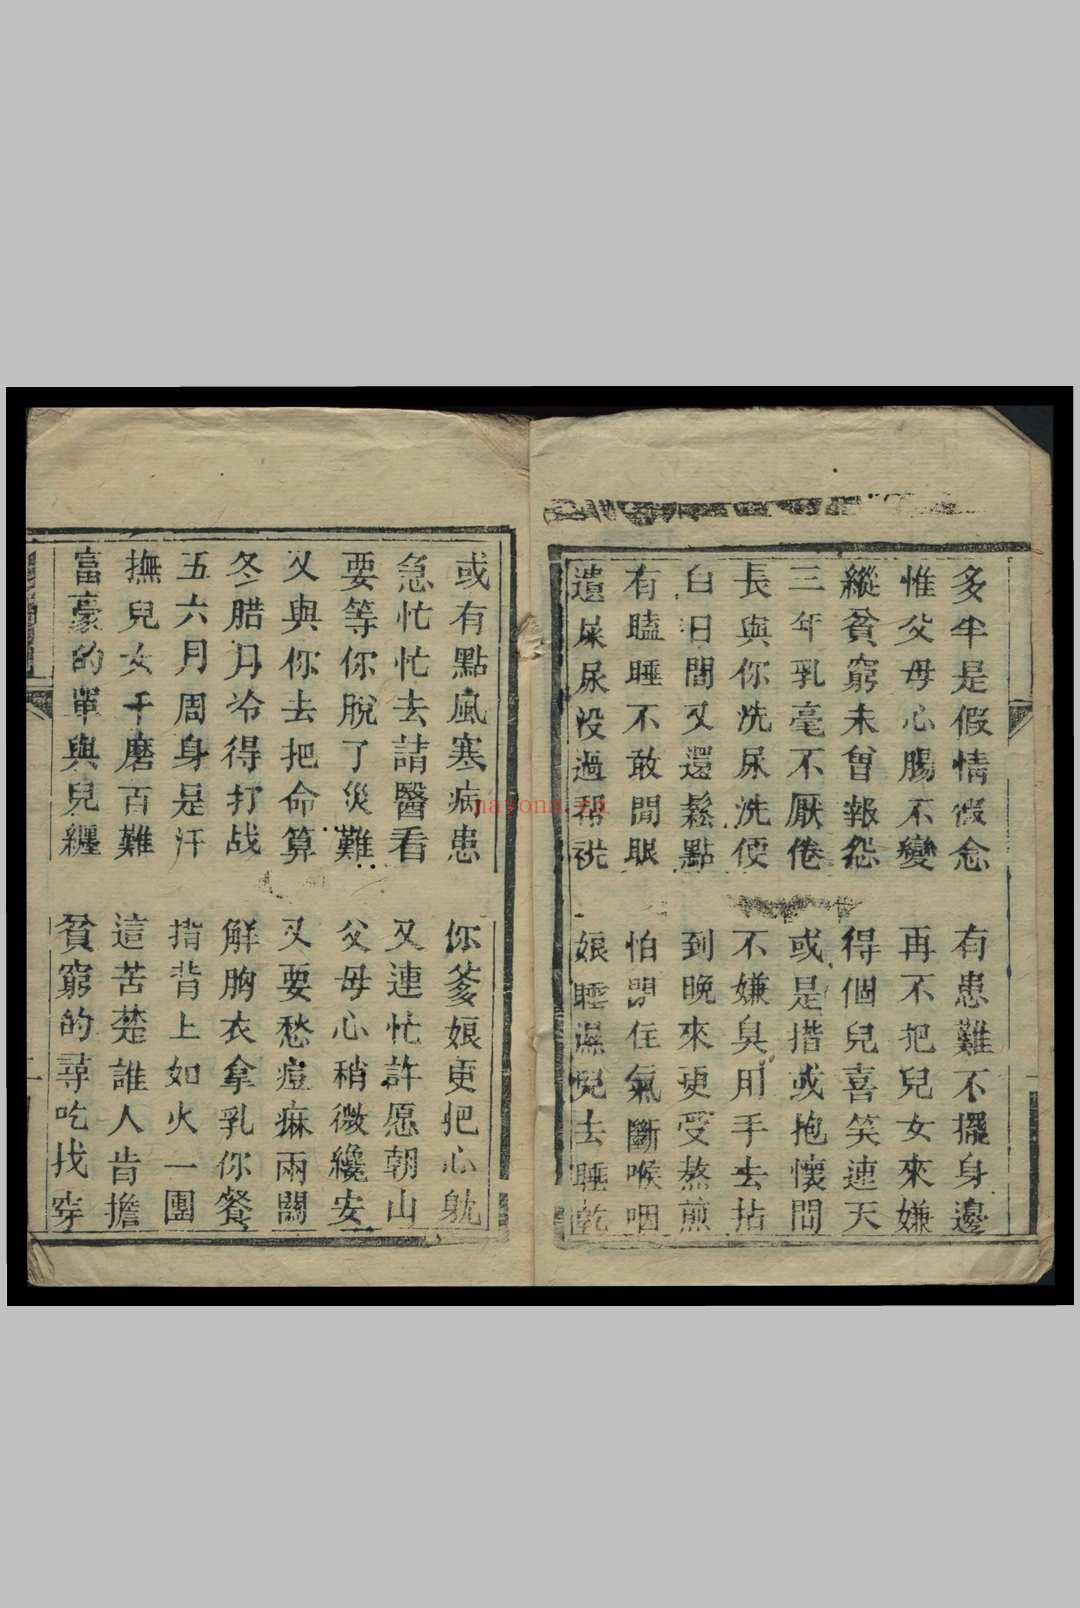 多半是假情假念　有患難不擺身邊
惟父母心腸不變　再不把兒女來嫌
縱貧窮未曾報怨　得個兒喜笑連天
三年乳毫不厭倦　或是揹或抱懷間
長與你洗尿洗便　不嫌臭用手去拈
白日間又還鬆點　到晚來更受熬煎
有瞌睡不敢閒眼　怕閉住氣斷喉咽
遺屎尿没過帮洗　娘睡濕兒去睡乾
或有點風寒病患　你爹娘更把心躭
急忙忙去請醫看　又連忙許愿朝山
要等你脫了災難　父母心稍微纔安
又與你去把命算　又要愁痘痳兩關
冬腊月冷得打战　解胸衣拿乳你餐
五六月周身是汗　指背上如火一團
撫兒女千磨百難　這苦楚誰人肯擔
富豪的單與兒纏　貧窮的尋吃找穿
nayona.cn